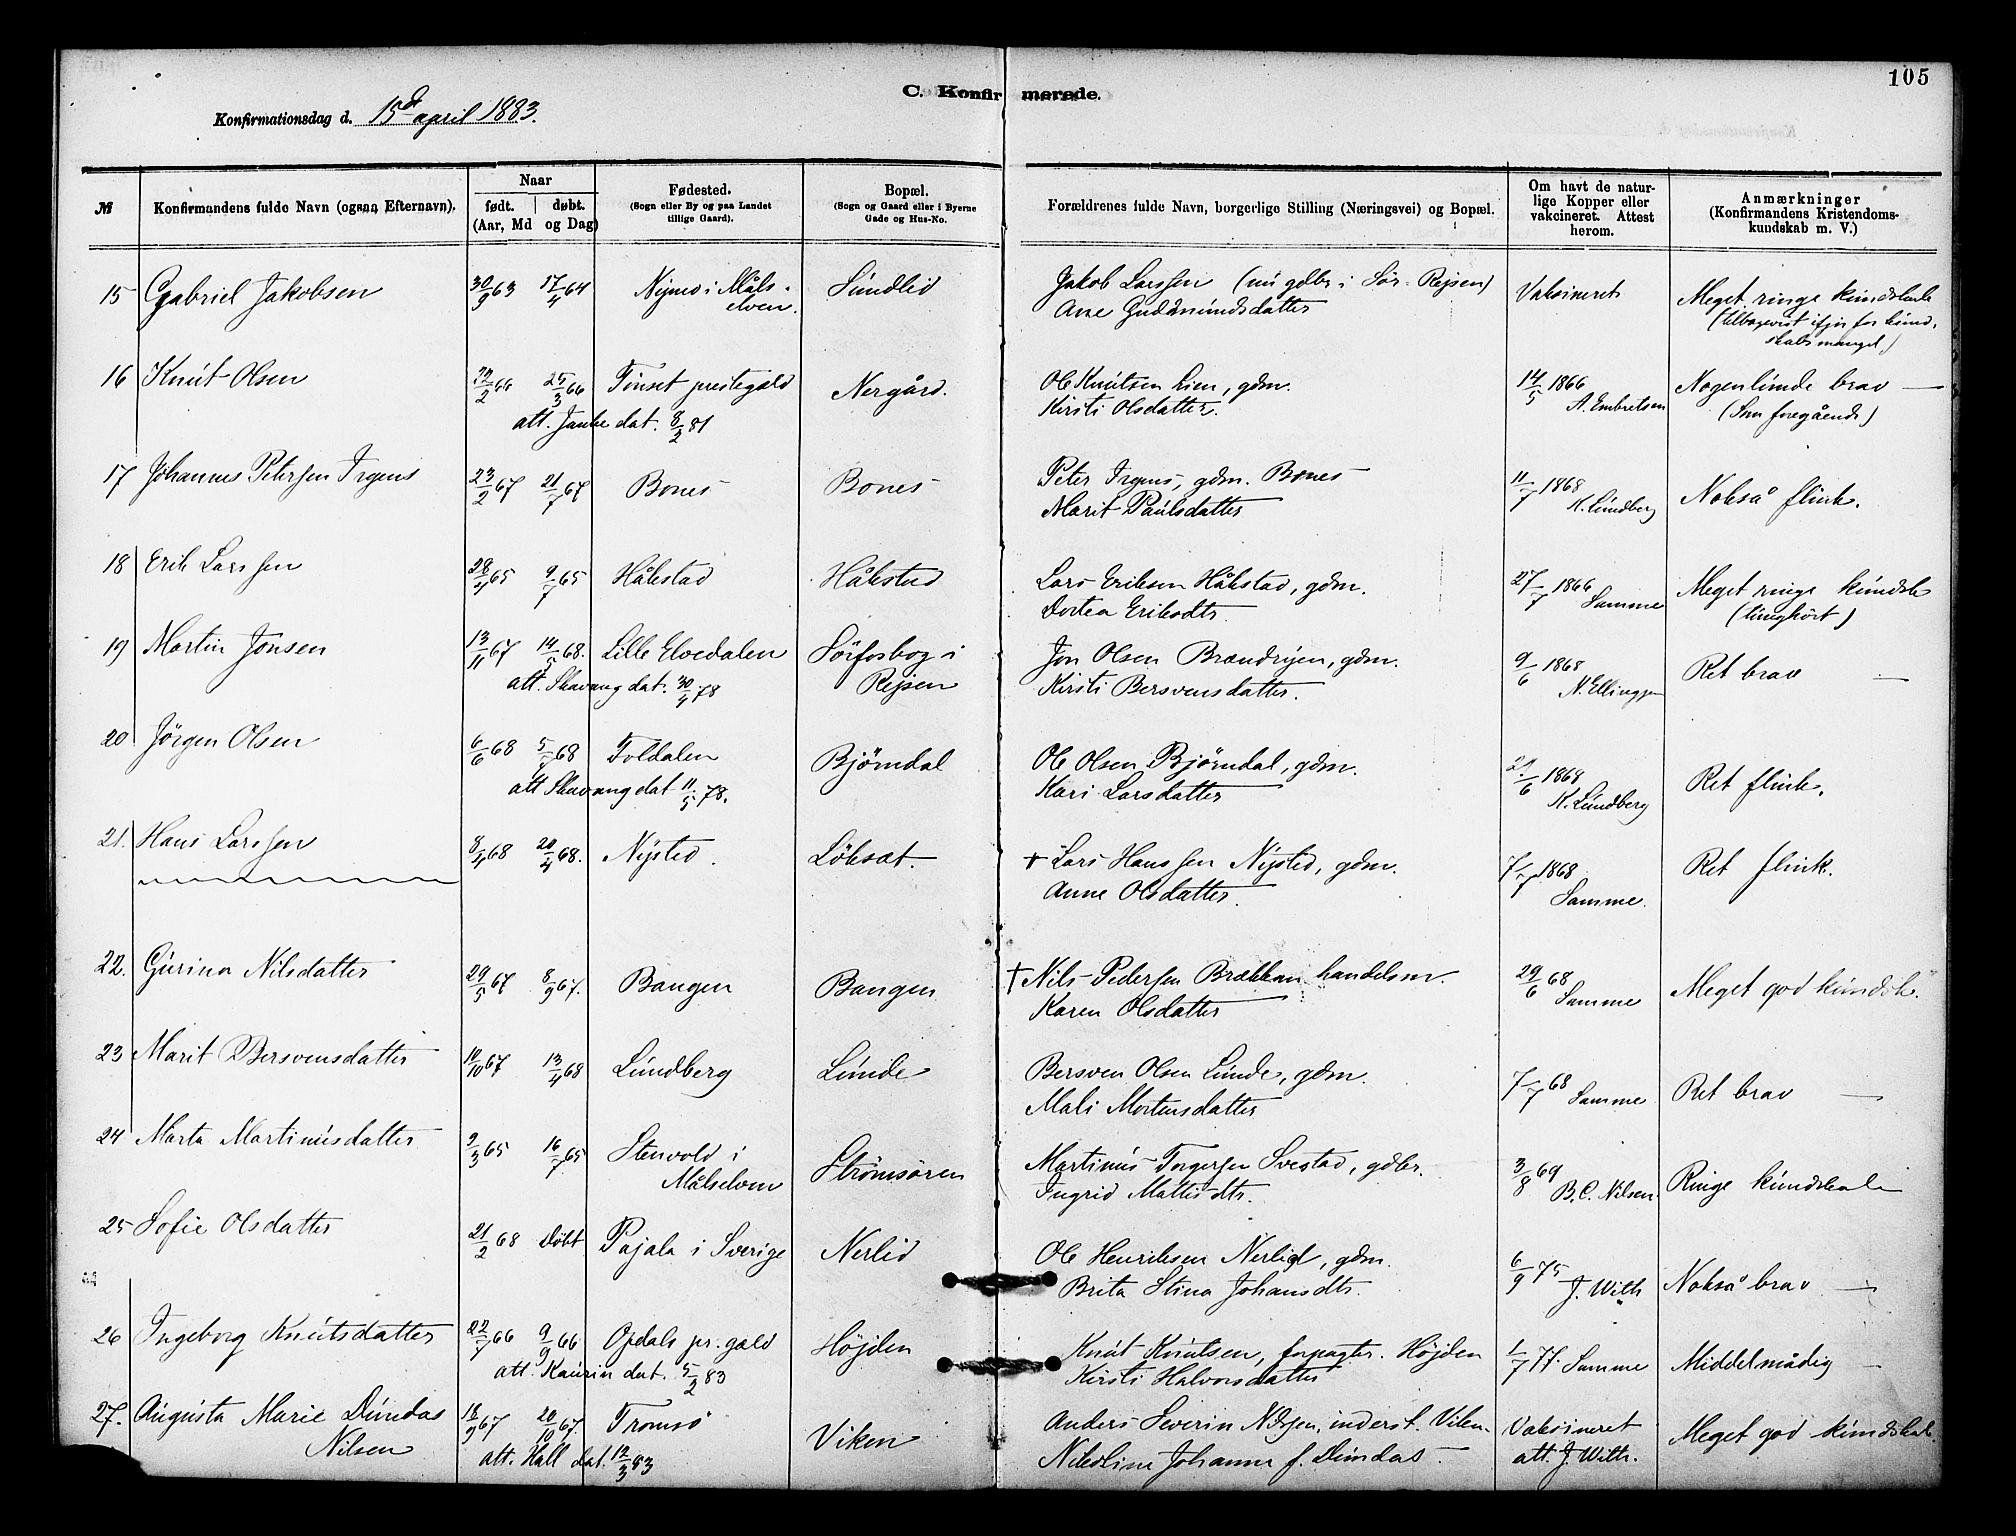 105
C. Konfirmerede.
Konfirmationsdag d. 15d april 1883.
№ Konfirmandens fulde Navn (ogsaa Efternavn). Naar født. døbt. (Aar, Md og Dag) Fødested. (Sogn eller By og paa Landet tillige Gaard). Bopæl. (Sogn og Gaard eller i Byerne Gade og Hus-No. Forældrenes fulde Navn, borgerlige Stilling (Næringsvei) og Bopæl. Om havt de naturlige Kopper eller vakcineret. Attest herom. Anmærkninger (Konfirmandens Kristendomskundskab m. V.)
15 Gabriel Jakobsen 30/9 63 17/4 64 Nymo i Måls- Sundlid Jakob Larssen (nu gdbr i Sør-Rejsen) Vaksineret Meget ringe kundskab
elven. Ane Guddmundsdatter (tilbagevist ifjor for kund-
skabs mangel)
16 Knut Olsen 22/2 66 25/3 66 Tønset prestegæld Nergård. Ole Knutsen Lien, gdm. 14/5 1866 Nogenlunde brav —
att. Janke dat. 8/2 81 Kirsti Olsdatter. A. Embretsen (Som foregående)
17 Johannes Petersen Irgens 23/2 67 21/7 67 Bones Bones Peter Irgens, gdm. Bones 11/7 1868 Nokså flink.
Marit Paulsdatter K. Lundberg
18 Erik Larssen 28/4 65 9/7 65 Håkstad Håkstad Lars Eriksen Håkstad, gdm. 27/7 1866 Meget ringe kundsk
Dortea Eriksdtr. Samme (tunghørt)
19 Martin Jonsen 13/11 67 14/5 68. Lille Elvedalen Sørfosbog i Jon Olsen Brandryen, gdm. 9/6 1868 Ret brav —
att. Skavang dat. 30/4 78 Rejsen Kirsti Bersvensdatter. N. Ellingsen
20 Jörgen Olsen 6/6 68 5/7 68 Foldalen Björndal Ole Olsen Björndal, gdm. 21/6 1868 Ret flink.
att Skavang dat 11/5 78. Kari Larsdatter K. Lundberg
21. Hans Larssen 8/4 68 20/4 68. Nysted. Löksæt. † Lars Hanssen Nysted, gdm. 7/7 1868 Ret flink.
Anne Olsdatter. Samme.
22. Gurina Nilsdatter 29/5 67 8/9 67. Bangen Bangen † Nils Pedersen Brækkan handelsm. 29/6 68 Meget god kundsk.
Karen Olsdatter Samme
23 Marit Bersvensdatter 10/10 67 13/4 68 Lundberg Lunde Bersven Olsen Lunde, gdm. 7/7 68 Samme Ret brav —
Mali Mortensdatter
24 Marta Martinusdatter 9/3 65 16/7 65 Stenvold i Strömsören Martinus Torgersen Svestad, gdbr. 3/8 69 Ringe kundskab
Målselven Ingrid Mattisdtr. B.C. Nilsen.
25 Sofie Olsdatter 21/2 68 Döbt Pajala i Sverige Nerlid Ole Henriksen Nerlid, gdm. 6/9 75 Nokså brav —
Brita Stina Johansdtr. J. With
26 Ingeborg Knutsdatter 22/7 66 9/9 66 Opdals pr.gæld Höjden Knut Knutsen, forpagter. Höjden 1/7 77. Samme Middelmådig —
att. Kaurin dat. 5/2 83 Kirsti Halvorsdatter
27. Augusta Marie Dundas 18/9 67 20/10 67. Tromsö Viken Anders Severin Nilsen, inderst. Viken Vaksineret Meget god kundskab.
Nilsen att. Hall dat. 12/3 83 Nikoline Johanne f. Dundas att. J. With.